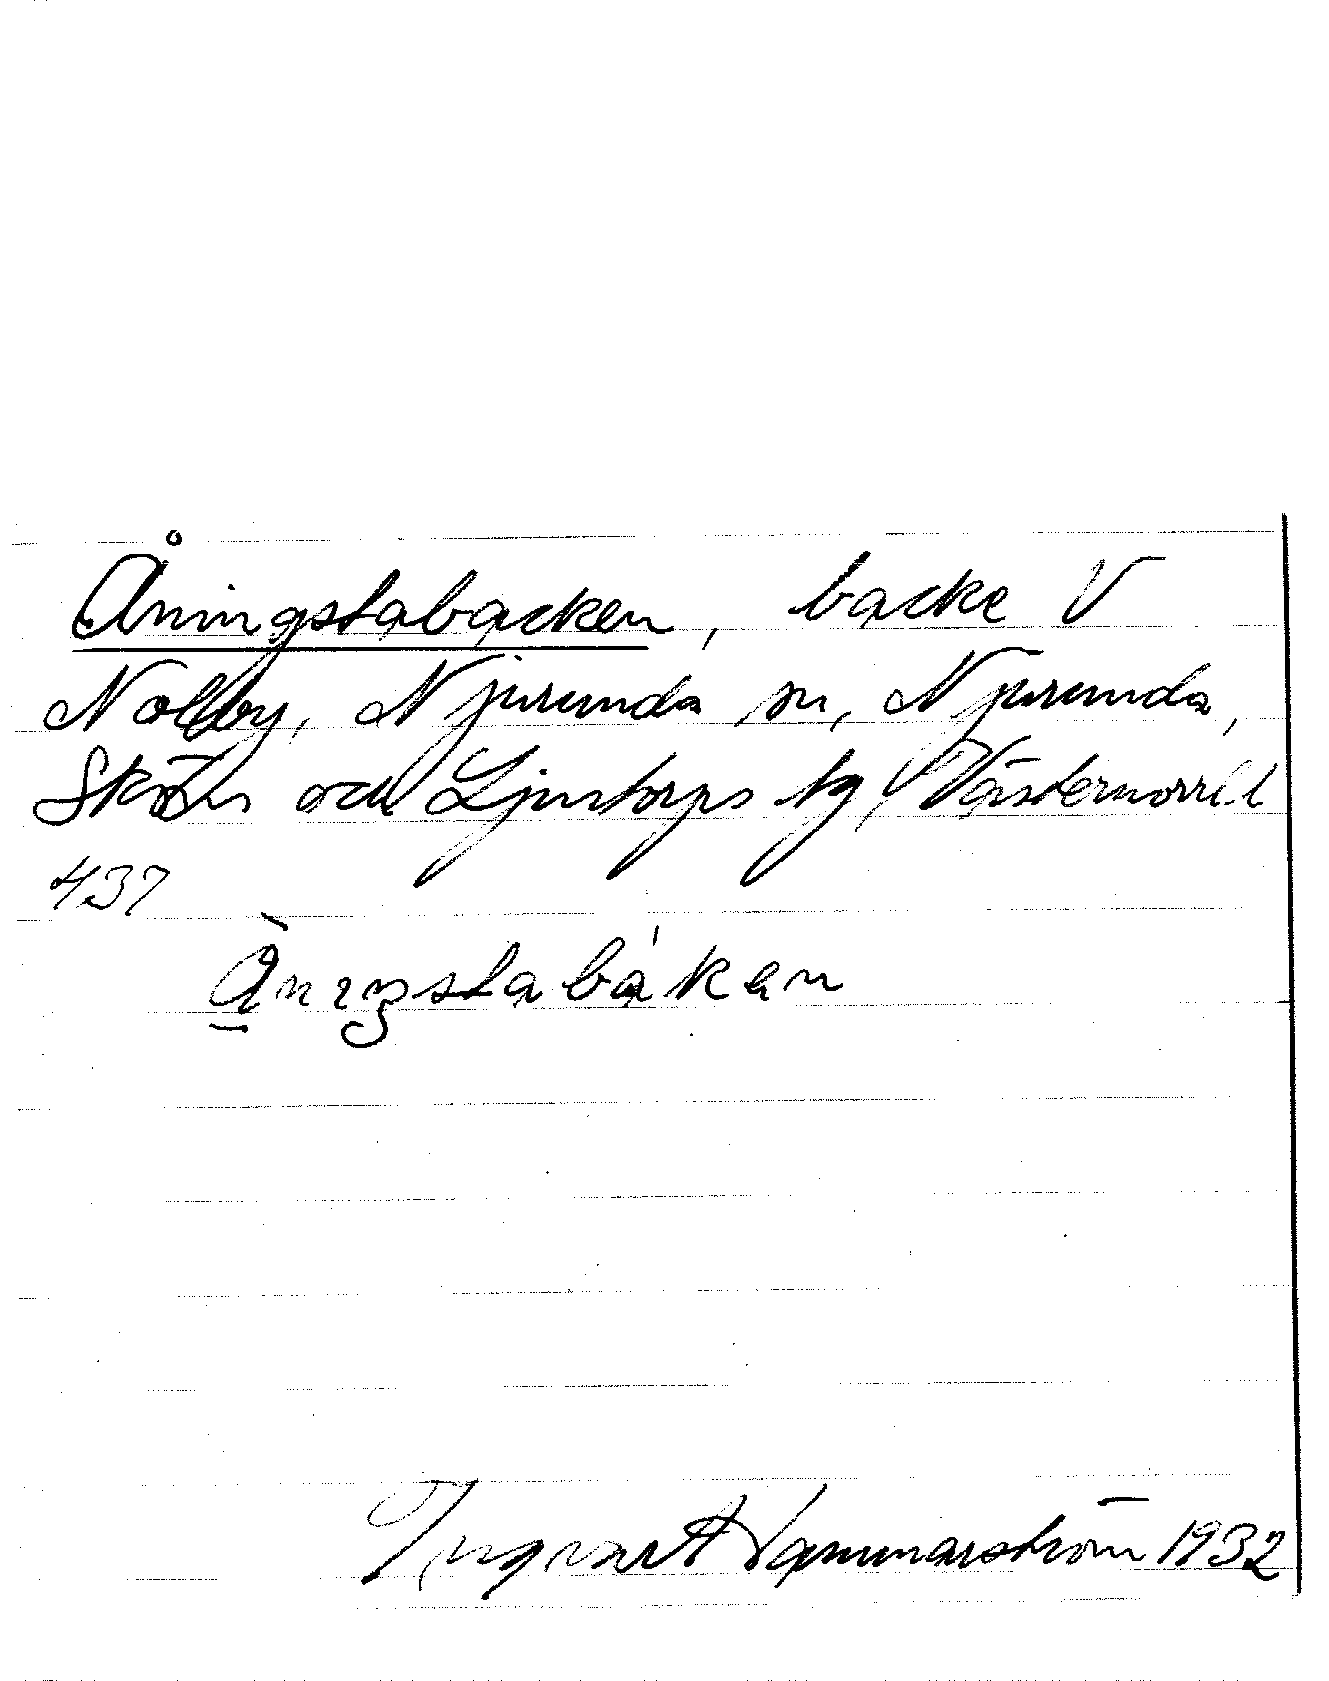 Åningstabacken, backe V
Nolby, Njurunda sn, Njurunda,
Sköns och Ljustorps tg Västernorrl. l
437
Ànıŋstabákan
Ingvar Hammarström 1932